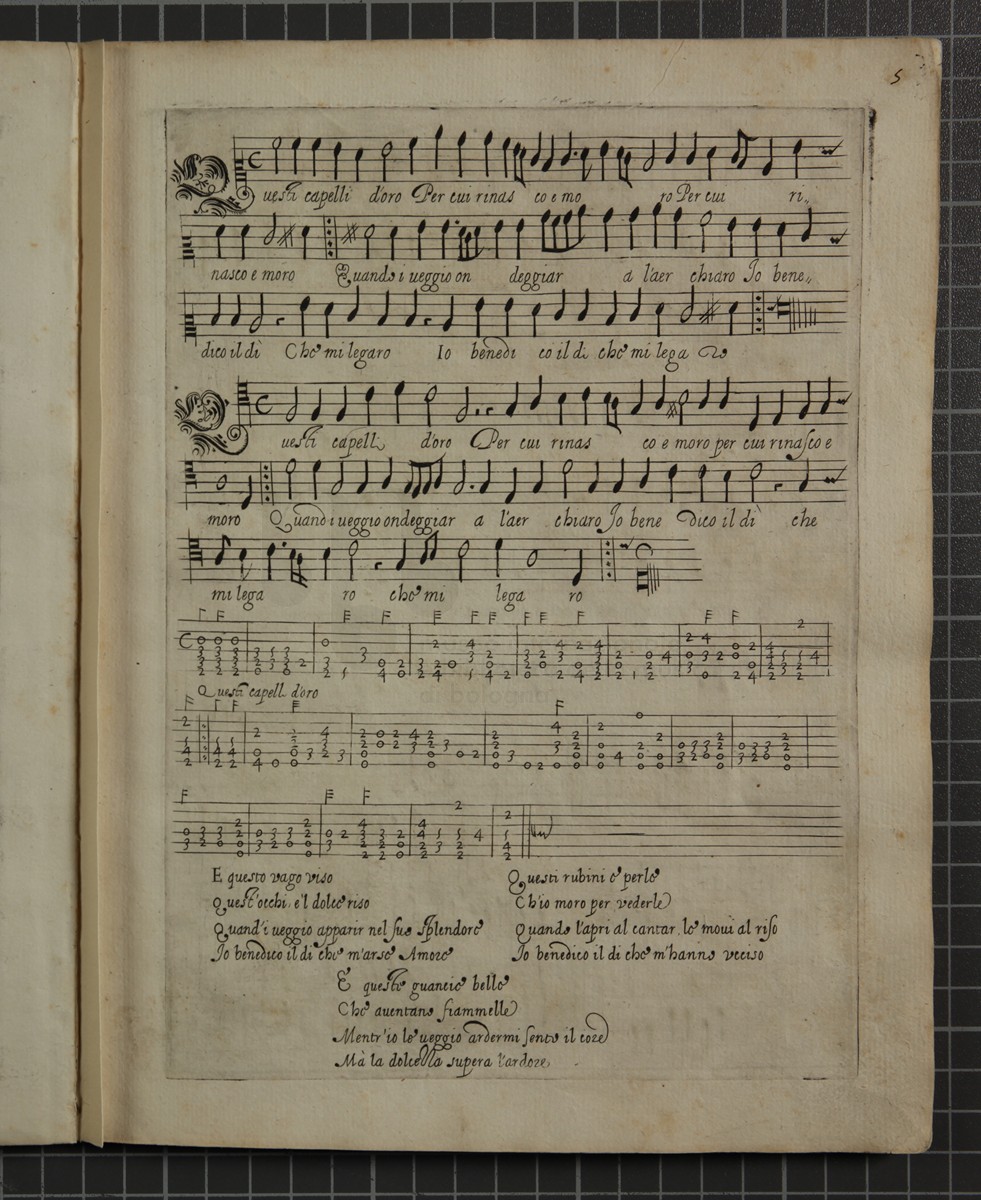 5
uesti capelli d'oro Per cui rinas co e mo ro Per cui ri,,
nasco e moro Quando i ueggio on deggiar a l'aer chiaro Io bene,,
dico il dì Che mi legaro Io benedi co il di che mi lega ro
uesti capelli d'oro Per cui rinas co e moro per cui rinasco e
moro Quand i ueggio ondeggiar a l'aer chiaro Io bene dico il dì che
mi lega ro che mi lega ro
Questi capell d'oro
E questo vago viso
Quest'occhi, e'l dolce riso
Quand'i ueggio apparir nel suo splendore
Io benedico il di che m'arse Amore
Questi rubini e perle
Ch'io moro per vederle
Quando l'apri al cantar, le moui al riso
Io benedico il di che m'hanno ucciso
E queste guancie belle
Che auentano fiammelle
Mentr'io le ueggio ardermi sento il core
Mà la dolcezza supera l'ardore